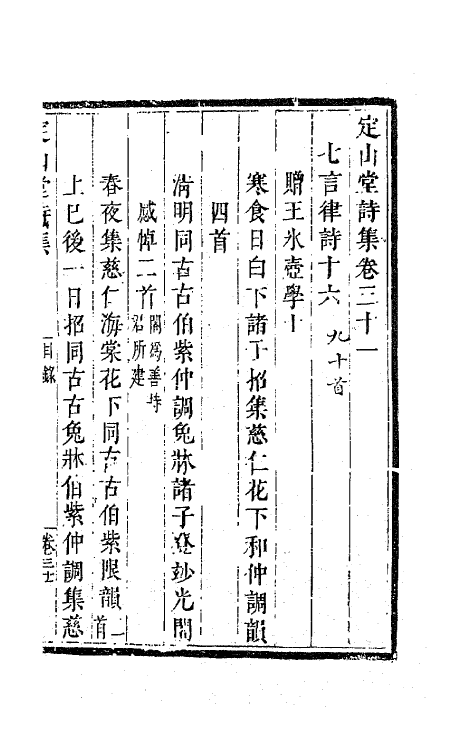 定山堂詩集卷三十一
七言律詩十六 九十首
贈王氷壺學士
寒食日白下諸子招集慈仁花下和仲調韻
四首
清明同古古伯紫仲調兔牀諸子登妙光閣
感悼二首 閣爲善持君所建
春夜集慈仁海棠花下同古古伯紫限韻二首
上巳後一日招同古古兔牀伯紫仲調集慈
定山堂詩集 目錄 卷三十一